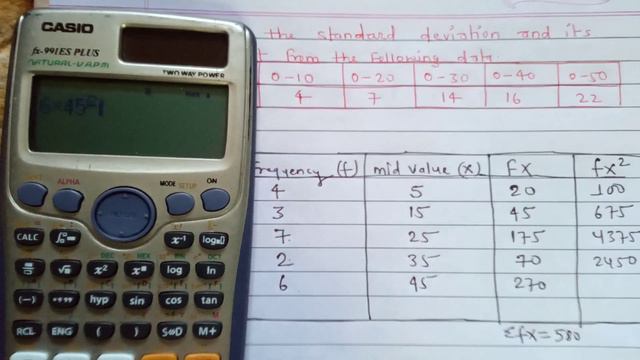 CASIO
fx-991ES PLUS
NATURAL-V.P.A.M.
TWO WAY POWER
6×45²
SHIFT ALPHA MODE SETUP ON
REPLAY
CALC x⁻¹ log
x² log ln
(−) hyp sin cos tan
RCL ENG ( ) S⇔D M+
the standard deviation and its
from the following data.
0-10 0-20 0-30 0-40 0-50
4 7 14 16 22
frequency (f) mid value (x) fx fx²
4 5 20 100
3 15 45 675
7 25 175 4375
2 35 70 2450
6 45 270
Σfx = 580